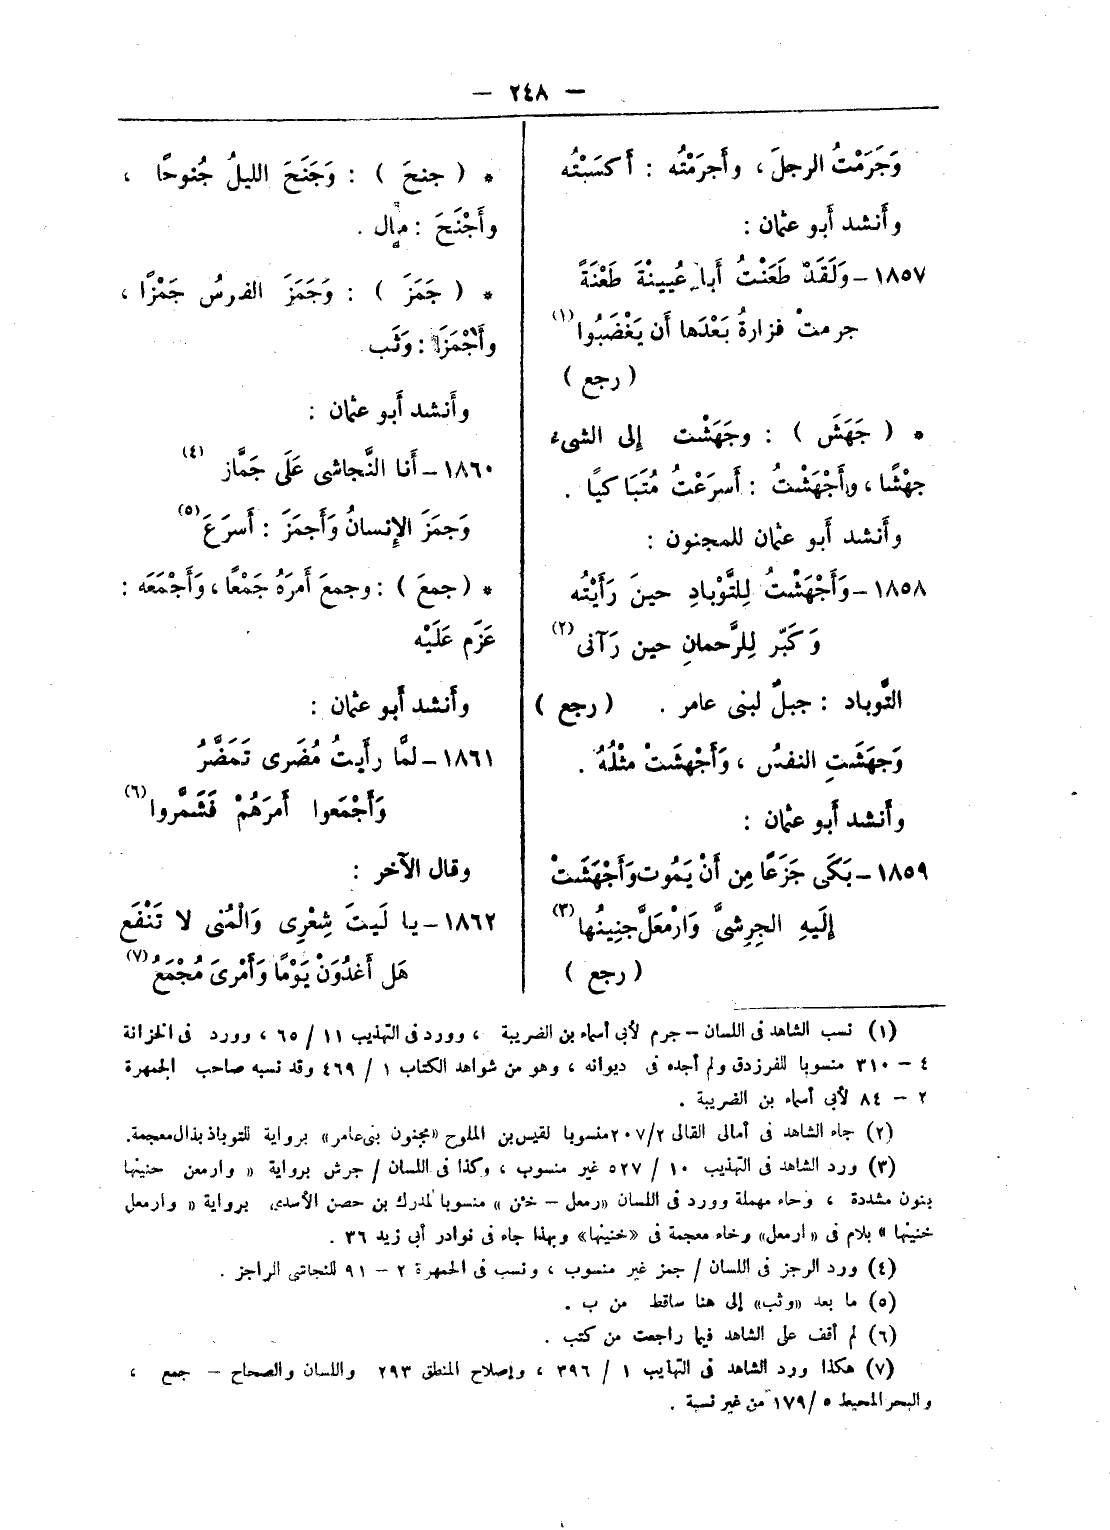 — ٢٤٨ —
وَجَرَمْتُ الرجلَ، وأجرَمْتُه : أَكسَبْتُه
وأَنشد أَبو عثمان :
١٨٥٧ - وَلَقَدْ طَعَنْتُ أَبا عُيينْةَ طَعْنَةً
جرمتْ فزارةُ بَعْدَها أَن يَغْضَبُوا (١)
( رجع )
* ( جَهَشَ ) : وجَهَشْت إلى الشىء
جهْشًا ، وأَجْهَشْتُ : أَسرَعْتُ مُتَباكيًا .
وأَنشد أَبو عثمان للمجنون :
١٨٥٨ - وَأَجْهَشْتُ لِلتَّوْبادِ حينَ رَأَيْتُه
وَكَبّر لِلرَّحمانِ حين رَآنى (٢)
التَّوباد : جبلٌ لبنى عامر . ( رجع )
وَجهَشَتِ النفسُ ، وَأَجْهشَتْ مثْلُهُ .
وأَنشد أَبو عثمان :
١٨٥٩ - بَكَى جَزَعًا مِن أَنْ يَمُوت وَأَجْهَشَتْ
إلَيهِ الجِرِشىَّ وَارْمعَلَّ جنِينُها (٣)
( رجع )
* ( جنحَ ) : وَجَنَحَ الليلُ جُنوحًا ،
وأَجْنَحَ : مال .
* ( جَمَزَ ) : وَجَمَزَ الفرسُ جَمْزًا ،
وأَجْمَزَ : وَثَب
وأَنشد أَبو عثمان :
١٨٦٠ - أَنا النَّجاشى عَلَى جَمَّاز (٤)
وَجمَزَ الإِنسانُ وَأَجمَزَ : أَسرَعَ (٥)
* ( جمعَ ) : وجمعَ أَمرَهُ جَمْعًا ، وَأَجْمَعَه :
عَزَم عَلَيْه
وأَنشد أَبو عثمان :
١٨٦١ - لمَّا رأَيتُ مُضَرى تَمَضَّرُ
وَأَجْمَعوا أَمرَهُمْ فَشَمَّروا (٦)
وقال الآخر :
١٨٦٢ - يا لَيتَ شِعْرِى وَالْمُنى لا تَنْفَع
هَل أَغدُوَنْ يَوْمًا وَأَمْرىَ مُجْمَعُ (٧)
(١) نسب الشاهد فى اللسان – جرم لأبى أسماء بن الضريبة ، وورد فى التهذيب ١١ / ٦٥ ، وورد فى الخزانة
٤ – ٣١٠ منسوبا للفرزدق ولم أجده فى ديوانه ، وهو من شواهد الكتاب ١ / ٤٦٩ وقد نسبه صاحب الجمهرة
٢ – ٨٤ لأبى أسماء بن الضريبة .
(٢) جاء الشاهد فى أمالى القالى ٢٠٧/٢ منسوبا لقيس بن الملوح «مجنون بنى عامر» برواية للتوباذ بذال معجمة.
(٣) ورد الشاهد فى التهذيب ١٠ / ٥٢٧ غير منسوب ، وكذا فى اللسان / جرش برواية « وارمعن حنينها
بنون مشددة ، وحاء مهملة وورد فى اللسان «رمعل – خنن » منسوبا لمدرك بن حصن الأسدى برواية « وارمعل
خنينها » بلام فى « ارمعل» وخاء معجمة فى «خنينها» وبهذا جاء فى نوادر أبى زيد ٣٦ .
(٤) ورد الرجز فى اللسان / جمز غير منسوب ، ونسب فى الجمهرة ٢ – ٩١ للنجاشى الراجز .
(٥) ما بعد «وثب» إلى هنا ساقط من ب .
(٦) لم أقف على الشاهد فيما راجعت من كتب .
(٧) هكذا ورد الشاهد فى التهذيب ١ / ٣٩٦ ، وإصلاح المنطق ٢٩٣ واللسان والصحاح – جمع ،
والبحر المحيط ٥ /١٧٩ من غير نسبة .